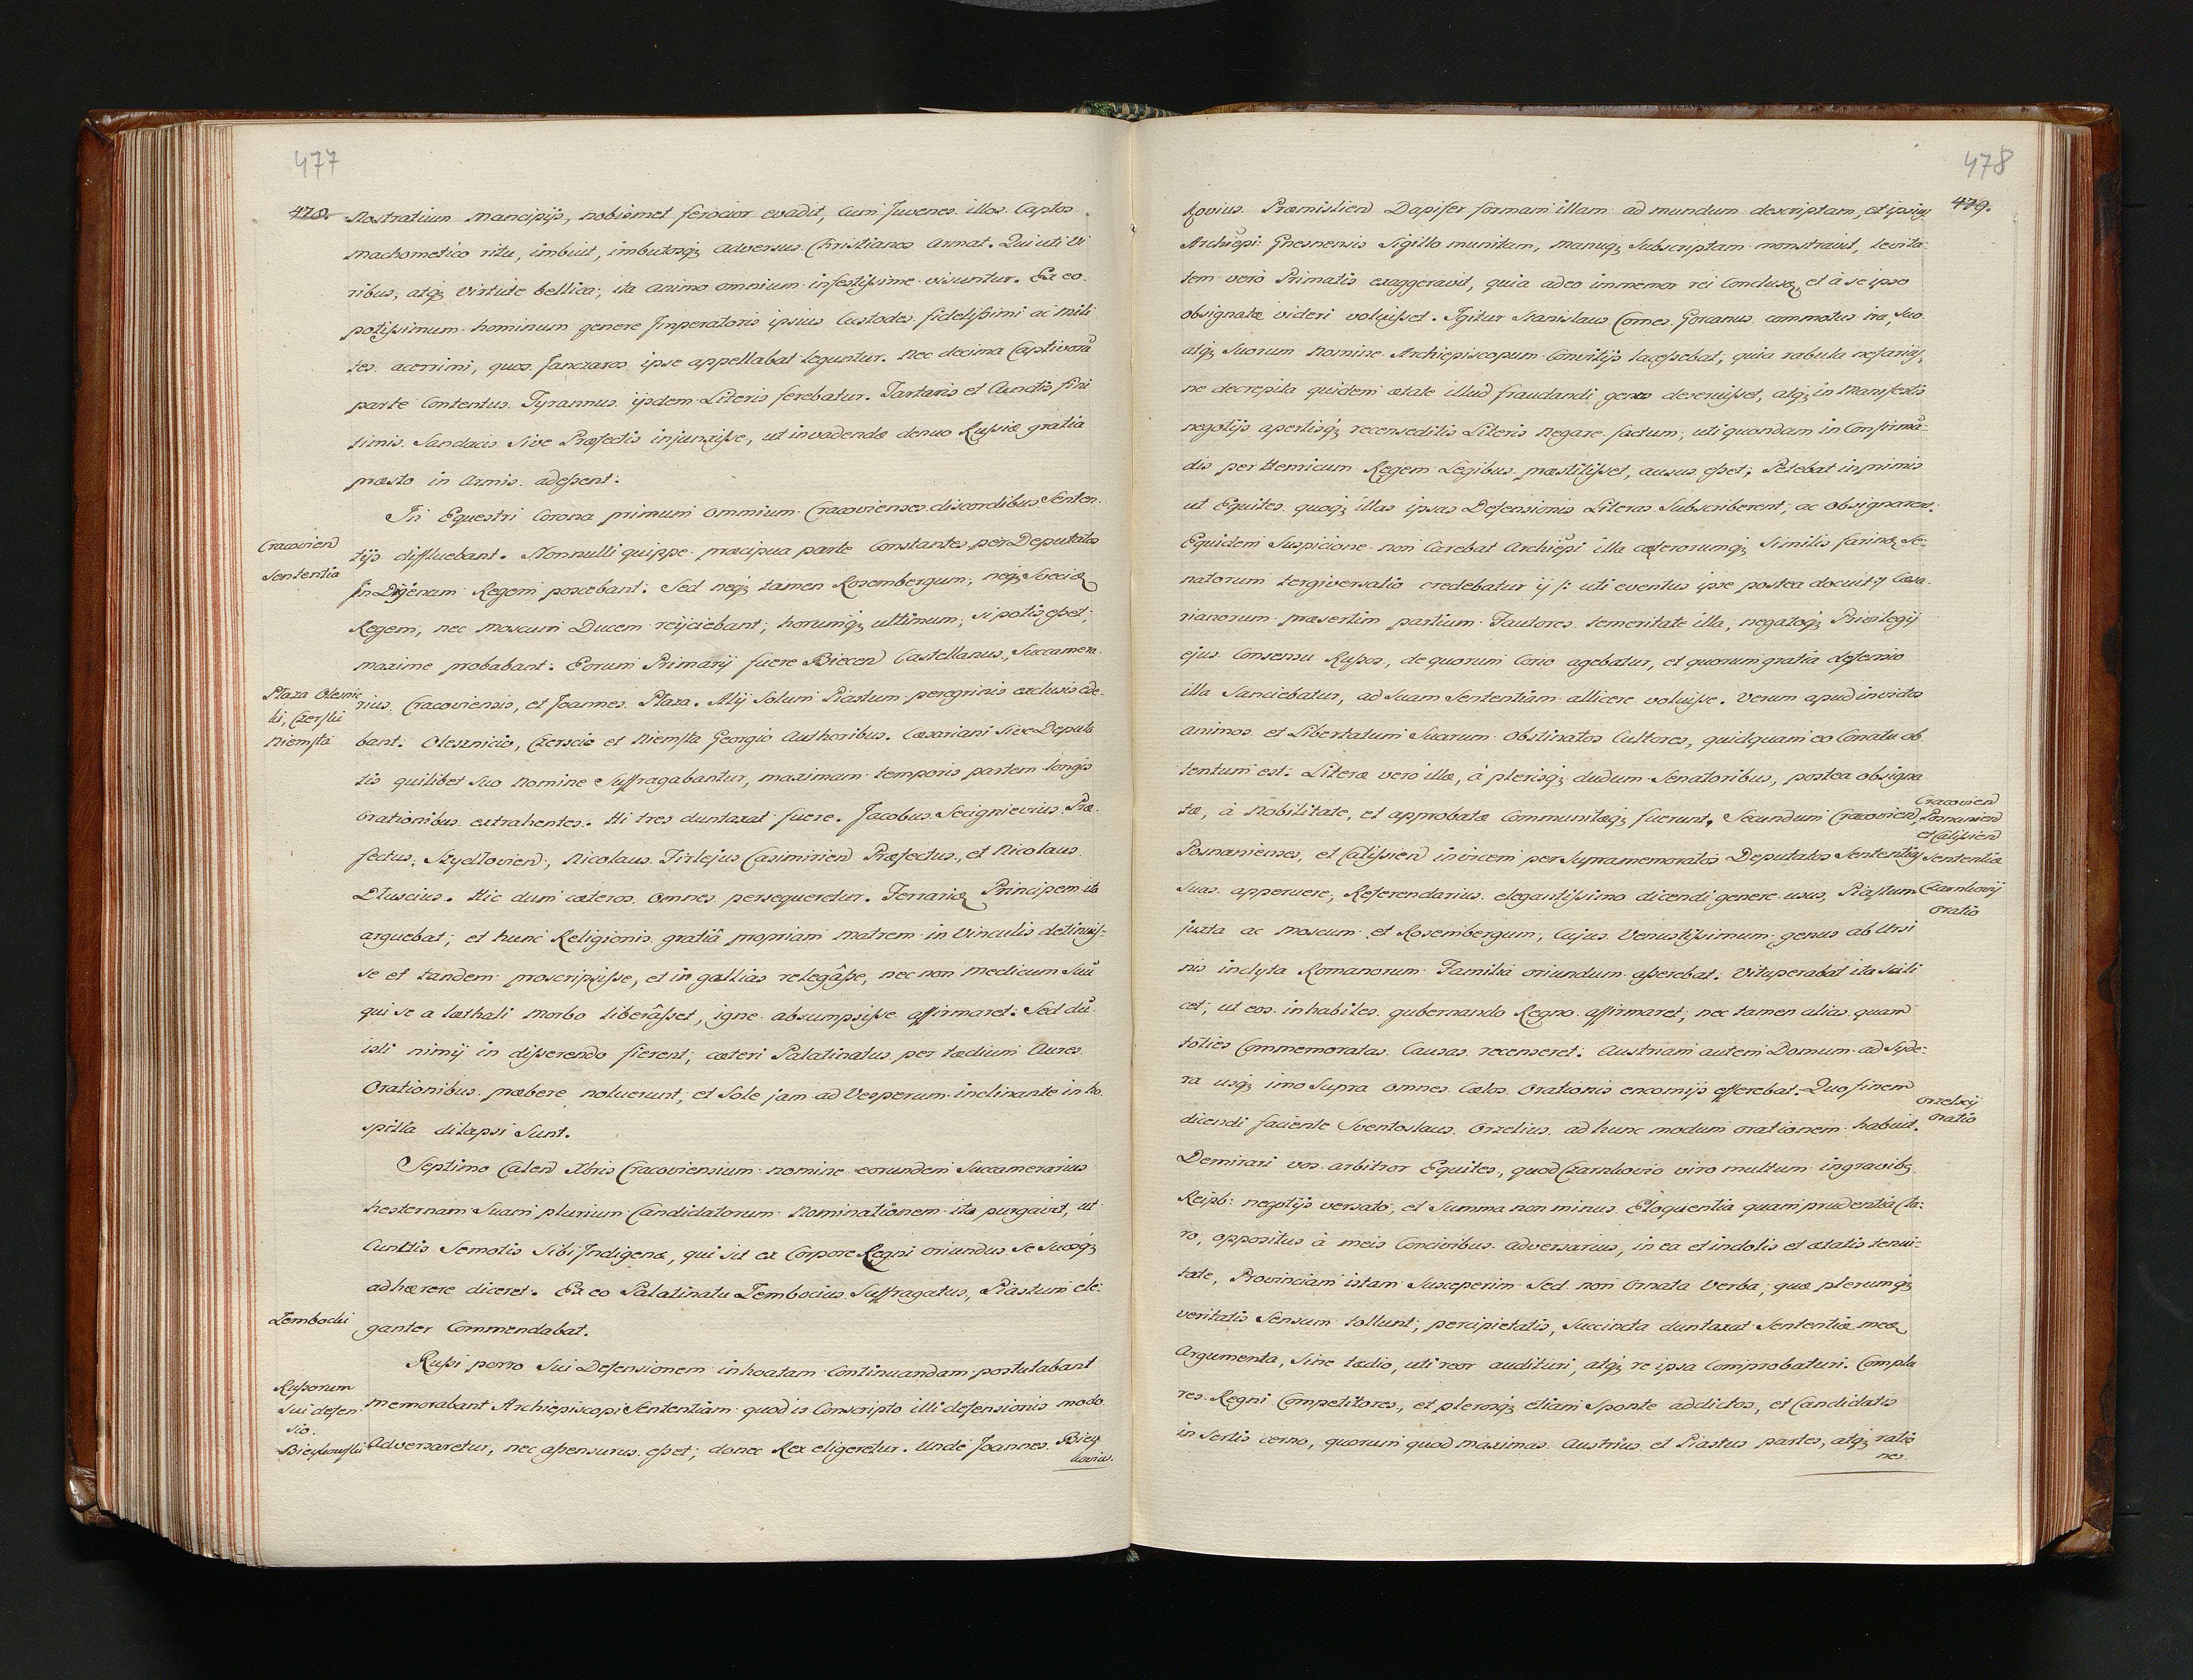 477
478. Nostratium mancipijs, nobismet ferocior evadit, Cum Juvenes illos Captos
machometico ritu, imbuit, imbutosq; adversus Christianos armat. Qui uti Vi
ribus, atq; Virtute bellica, ita animo omnium infestissime visuntur. Ex eo
potissimum hominum genere Imperatoris ipsius Custodes fidelissimi ac mili
tes acerrimi, quos Janczaros ipse appellabat leguntur. Nec decima Captivorũ
parte Contentus Tyrannus ijsdem Literis ferebatur. Tartaris et Cunctis fini
timis Sandacis Sive Præfectis injunxisse, ut invadendæ denuo Russiæ gratia
præsto in Armis adessent.
In Equestri Corona primum omnium Cracovienses discordibus Senten
Cracovien
Sententia
tijs diffluebant. Nonnulli quippe præcipua parte Constantes per Deputatos
Indigenam Regem poscebant. Sed neq; tamen Rosembergum, neq; Sveciæ
Regem, nec Moscum Ducem reijciebant; horumq; ultimum, si potis esset,
maxime probabant. Eorum Primarij fuere Biecen Castellanus, Succamera
Plaza Olesnic
ki, Czerski
Niemsta
rius Cracoviensis, et Joannes Plaza. Alij Solum Piastum peregrinis exclusis ede
bant. Olesznicio, Czerscio et Niemsta Georgio Authoribus. Cæsariani Sive Deputa
tis quilibet Suo Nomine Suffragabantur, maximam temporis partem longis
Orationibus extrahentes. Hi tres duntaxat fuere. Jacobus Secignievius Præ
fectus Szydlovien, Nicolaus Firlejus Casimirien Præfectus, et Nicolaus
Dluscius. Hic dum cæteros omnes persequeretur. Ferrariæ Principem ita
arguebat; et hunc Religionis gratiâ propriam Matrem in Vinculis detinuis-
se et tandem proscripsisse, et in gallias relegâsse, nec non Medicum Suũ
qui se a læthali Morbo liberâsset, igne absumpsisse affirmaret. Sed dũ
isti nimij in disserendo fierent, cæteri Palatinatus per tædium Aures
Orationibus præbere noluerunt, et Sole jam ad Vesperum inclinante in ho
spitia dilapsi Sunt.
Septimo Calen Xbris Cracoviensium nomine eorundem Succamerarius
hesternam Suam plurium Candidatorum Nominationem ita purgavit, ut
Cunctis Semotis Sibi Indigenæ, qui sit ex Corpore Regni oriundus se Suosq;
adhærere diceret. Ex eo Palatinatu Zembocius Suffragatus, Piastum ele-
Zembocki
ganter Commendabat.
Russi porro Sui Defensionem inhoatam Continuandam postulabant
Russorum
Sui defen
sio.
Memorabant Archiepiscopi Sententiam quod is Conscripto illi defensionis modo
Adversaretur, nec assensurus esset; donec Rex eligeretur. Unde Joannes Biey
kovius.
478
479.
kovius Præmislien Dapifer formam illam ad mundum descriptam, et ipsius
Archiepi Gnesnensis Sigillo munitam, manuq; Subscriptam monstravit, levita-
tem verò Primatis exaggeravit, quia adeo immemor rei Conclusæ, et à se ipso
obsignatæ videri voluisset. Igitur Stanislaus Comes Gorcanus commotus ira, Suo
atq; Suorum Nomine Archiepiscopum Convitijs lacessebat, quia rabula nefarius,
ne decrepita quidem ætate illud fraudandi genus deseruisset, atq; in Manifestis
negotijs apertisq; recenseditis Literis Negare factum, uti quondam in Confirmã-
dis per Henricum Regem Legibus præstitisset, ausus esset; Petebat inprimis
ut Equites quoq; illas ipsas Defensionis Literas Subscriberent, ac Obsignarent.
Equidem Suspicione non Carebat Archiepi illa cæterorumq; Similis farinæ Se-
natorum tergiversatio credebatur ij /: uti eventus ipse postea docuit :/ Cæsa-
rianorum præsertim partium Fautores temeritate illa, negatoq; Privilegij
ejus Consensu Russos, de quorum Corio agebatur, et quorum gratia defensio
illa Sanciebatur, ad Suam Sententiam allicere voluisse. Verum apud invictos
animos et Libertatum Suarum Obstinatos Cultores, quidquam eo Conatu ob
tentum est. Literæ vero illæ, à plerisq; dudum Senatoribus, postea obsigna
tæ, à Nobilitate, et approbatæ Communitæq; fuerunt. Secundum Cracovien,
Cracovien
Posnanien
et Calissien
Sententiæ
Posnanienses, et Calissien invicem per Supramemoratos Deputatos Sententias
Suas apperuere, Referendarius elegantissimo dicendi genere usus, Piastum
Czarnkovij
Oratio
juxta ac Moscum et Rosembergum, Cujus Venustissimum genus ab Ursi
nis inclyta Romanorum Familia oriundum asserebat. Vituperabat ita Scili
cet, ut eos inhabiles gubernando Regno affirmaret, nec tamen alias quam
toties Commemoratas Causas recenseret. Austriam autem Domum ad Syde-
ra usq; imo Supra omnes Cælos Orationis encomijs efferebat. Quo finem
Orzelscij
Oratio
dicendi faciente Sventoslaus Orzelius ad hunc modum orationem habuit.
Demirari vos arbitror Equites, quod Czarnkovio viro multum in gravibq
Reipb: negotijs versato, et Summa non minus Eloquentia quam prudentia Cla-
ro, oppositus à meis Concivibus adversarius, in ea et indolis et ætatis tenui-
tate, Provinciam istam Susceperim Sed non Ornata Verba, quæ plerumq;
veritatis Sensum tollunt, percipietatis, Succincta duntaxat Sententiæ meæ
Argumenta, Sine tædio, uti reor audituri, atq; re ipsa Comprobaturi. Complu
res Regni Competitores, et plerosq; etiam Sponte addictos, et Candidatis
in Sertis cerno, quorum quod maximas Austrius et Piastus partes, atq; ratio
nes.